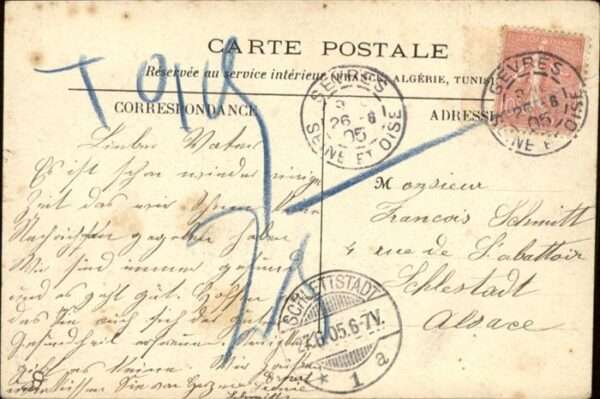 CARTE POSTALE
Réservée au service intérieur (FRANCE, ALGÉRIE, TUNISIE
CORRESPONDANCE
ADRESSE
SÈVRES
26 -6
05
SEINE ET OISE
SÈVRES
05
SEINE ET OISE
Lieber Vater
Es ist schon wieder einige
Zeit das wir Ihnen keine
Nachrichten gegeben haben
Wir sind immer gesund
und es geht gut. Hoffen
das Sie auch sich der guten
Gesundheit erfreuen
Monsieur
Francois Schmitt
4 rue de l'abattoir
Schlestadt
Alsace
SCHLETTSTADT
6.05.6-7V.
* 1 a